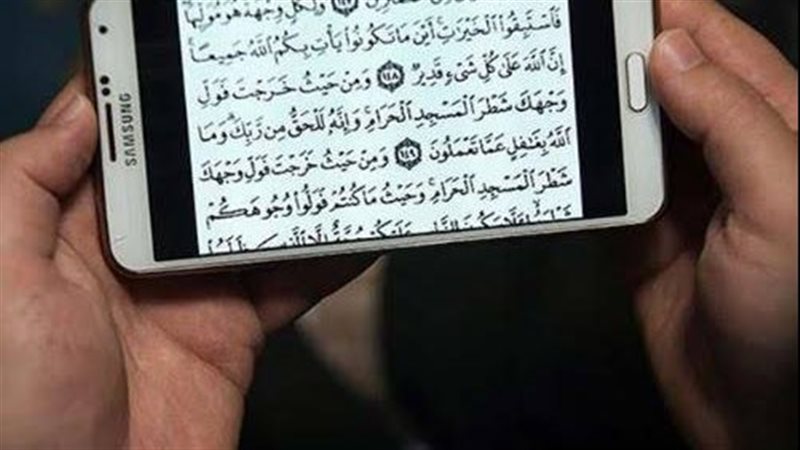 وَلِكُلٍّ وِجْهَةٌ هُوَ مُوَلِّيهَا
فَٱسْتَبِقُوا۟ ٱلْخَيْرَٰتِ أَيْنَ مَا تَكُونُوا۟ يَأْتِ بِكُمُ ٱللَّهُ جَمِيعًا
إِنَّ ٱللَّهَ عَلَىٰ كُلِّ شَىْءٍ قَدِيرٌ ١٤٨ وَمِنْ حَيْثُ خَرَجْتَ فَوَلِّ
وَجْهَكَ شَطْرَ ٱلْمَسْجِدِ ٱلْحَرَامِ وَإِنَّهُۥ لَلْحَقُّ مِن رَّبِّكَ وَمَا
ٱللَّهُ بِغَٰفِلٍ عَمَّا تَعْمَلُونَ ١٤٩ وَمِنْ حَيْثُ خَرَجْتَ فَوَلِّ وَجْهَكَ
شَطْرَ ٱلْمَسْجِدِ ٱلْحَرَامِ وَحَيْثُ مَا كُنتُمْ فَوَلُّوا۟ وُجُوهَكُمْ
SAMSUNG